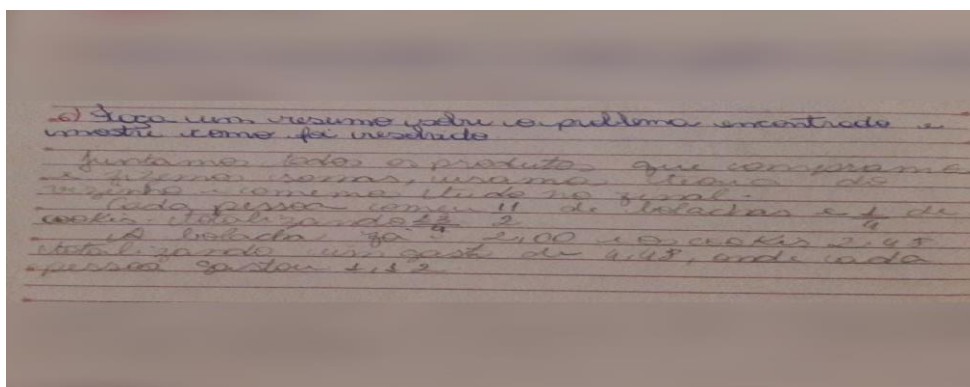 6) Faça um resumo sobre o problema encontrado e
mostre como foi resolvido
Juntamos todos os produtos que compramos
e fizemos somas, usamos de
e comemos tudo no final.
Cada pessoa comeu 11/2 de bolachas e 1/4 de
cookies totalizando
A bolacha foi 2,00 e os cookies 2,48
totalizando um gasto de 4,48, onde cada
pessoa gastou 1,12